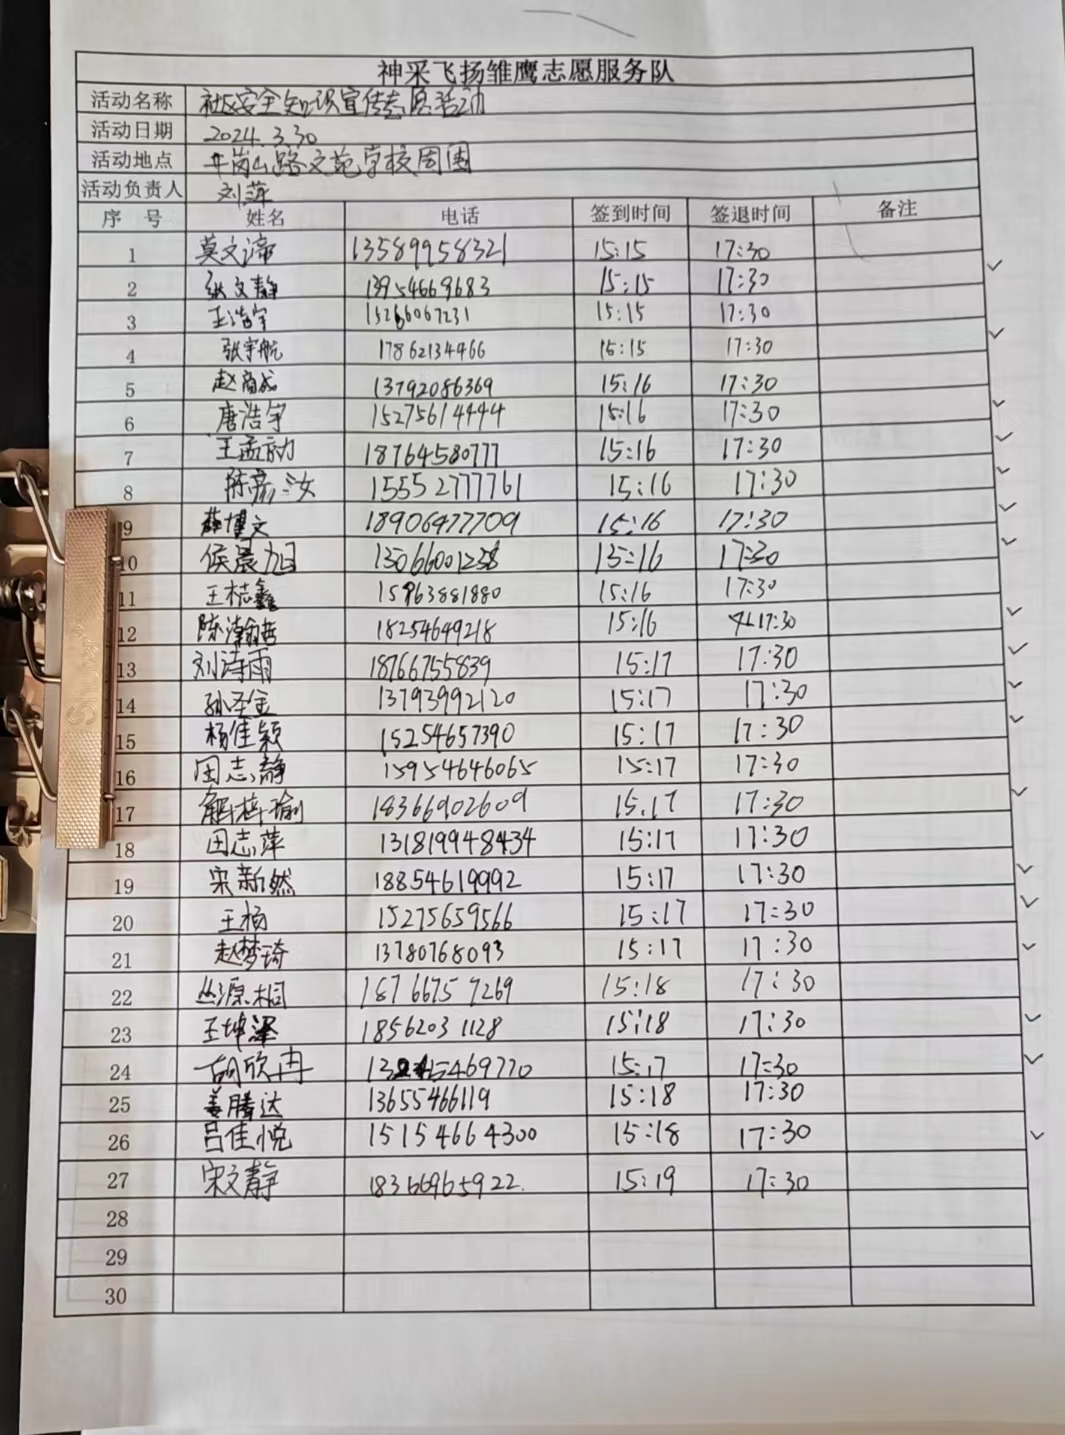 神采飞扬雏鹰志愿服务队
活动名称 社区安全知识宣传志愿活动
活动日期 2024.3.30
活动地点 井岗山路文苑学校周围
活动负责人 刘萍
序 号 姓名 电话 签到时间 签退时间 备注
1 莫文渧 13589958321 15:15 17:30
2 张文静 13954669683 15:15 17:30
3 王浩宇 15266067231 15:15 17:30
4 张宇航 17862134466 15:15 17:30
5 赵商成 13792086369 15:16 17:30
6 唐浩宇 15275614444 15:16 17:30
7 王孟勋 18764580777 15:16 17:30
8 陈彦汝 15552777761 15:16 17:30
9 薛博文 18906477709 15:16 17:30
10 侯晨旭 13066001238 15:16 17:30
11 王梓鑫 15963881880 15:16 17:30
12 陈瀚哲 18254649218 15:16 17:30
13 刘诗雨 18766755839 15:17 17:30
14 孙圣金 13793992120 15:17 17:30
15 杨佳颖 15254657390 15:17 17:30
16 田志静 15954646065 15:17 17:30
17 解梓瑜 18366902609 15:17 17:30
18 田志萍 131819948434 15:17 17:30
19 宋新然 18854619992 15:17 17:30
20 王杨 15275659566 15:17 17:30
21 赵梦琦 13780768093 15:17 17:30
22 丛源桐 18766757269 15:18 17:30
23 王坤泽 18562031128 15:18 17:30
24 胡欣冉 15:17 17:30
25 姜腾达 13655466119 15:18 17:30
26 吕佳悦 15154664300 15:18 17:30
27 宋文静 18366965922. 15:19 17:30
28
29
30